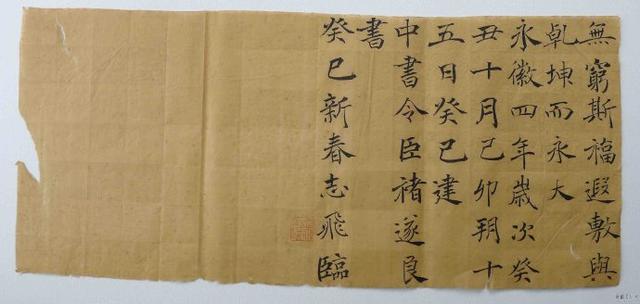 無窮斯福遐敷與
乹坤而永大
永徽四年歲次癸
丑十月己卯朔十
五日癸巳建
中書令臣褚遂良
書
癸巳新春志飛臨